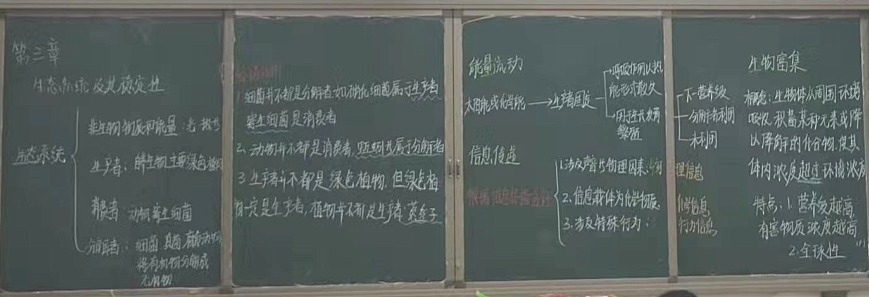 第三章
生态系统及其稳定性
生态系统
非生物物质和能量:光 热
生产者:自养生物 主要绿色植物
消费者:动物 寄生细菌
分解者:细菌 真菌 腐食动物
将有机物分解成
无机物
1.细菌并不都是分解者如硝化细菌属于生产者
寄生细菌是消费者
2.动物并不都是消费者,蚯蚓也属于分解者
3.生产者并不都是绿色植物,但绿色植
物一定是生产者,植物并不都是生产者,菟丝子
能量流动
太阳能或化学能→生产者固定
呼吸作用以热
能形式散失
用于生长发育
繁殖
下一营养级
分解者利用
未利用
信息传递
1.涉及声音等物理因素:物理信息
2.信息载体为化学物质:化学信息
3.涉及特殊行为:行为信息
生物富集
概念:生物体从周围环境
吸收、积蓄某种元素或难
以降解的化合物,使其
体内浓度超过环境浓度
特点:1.营养级越高
有害物质浓度越高
2.全球性